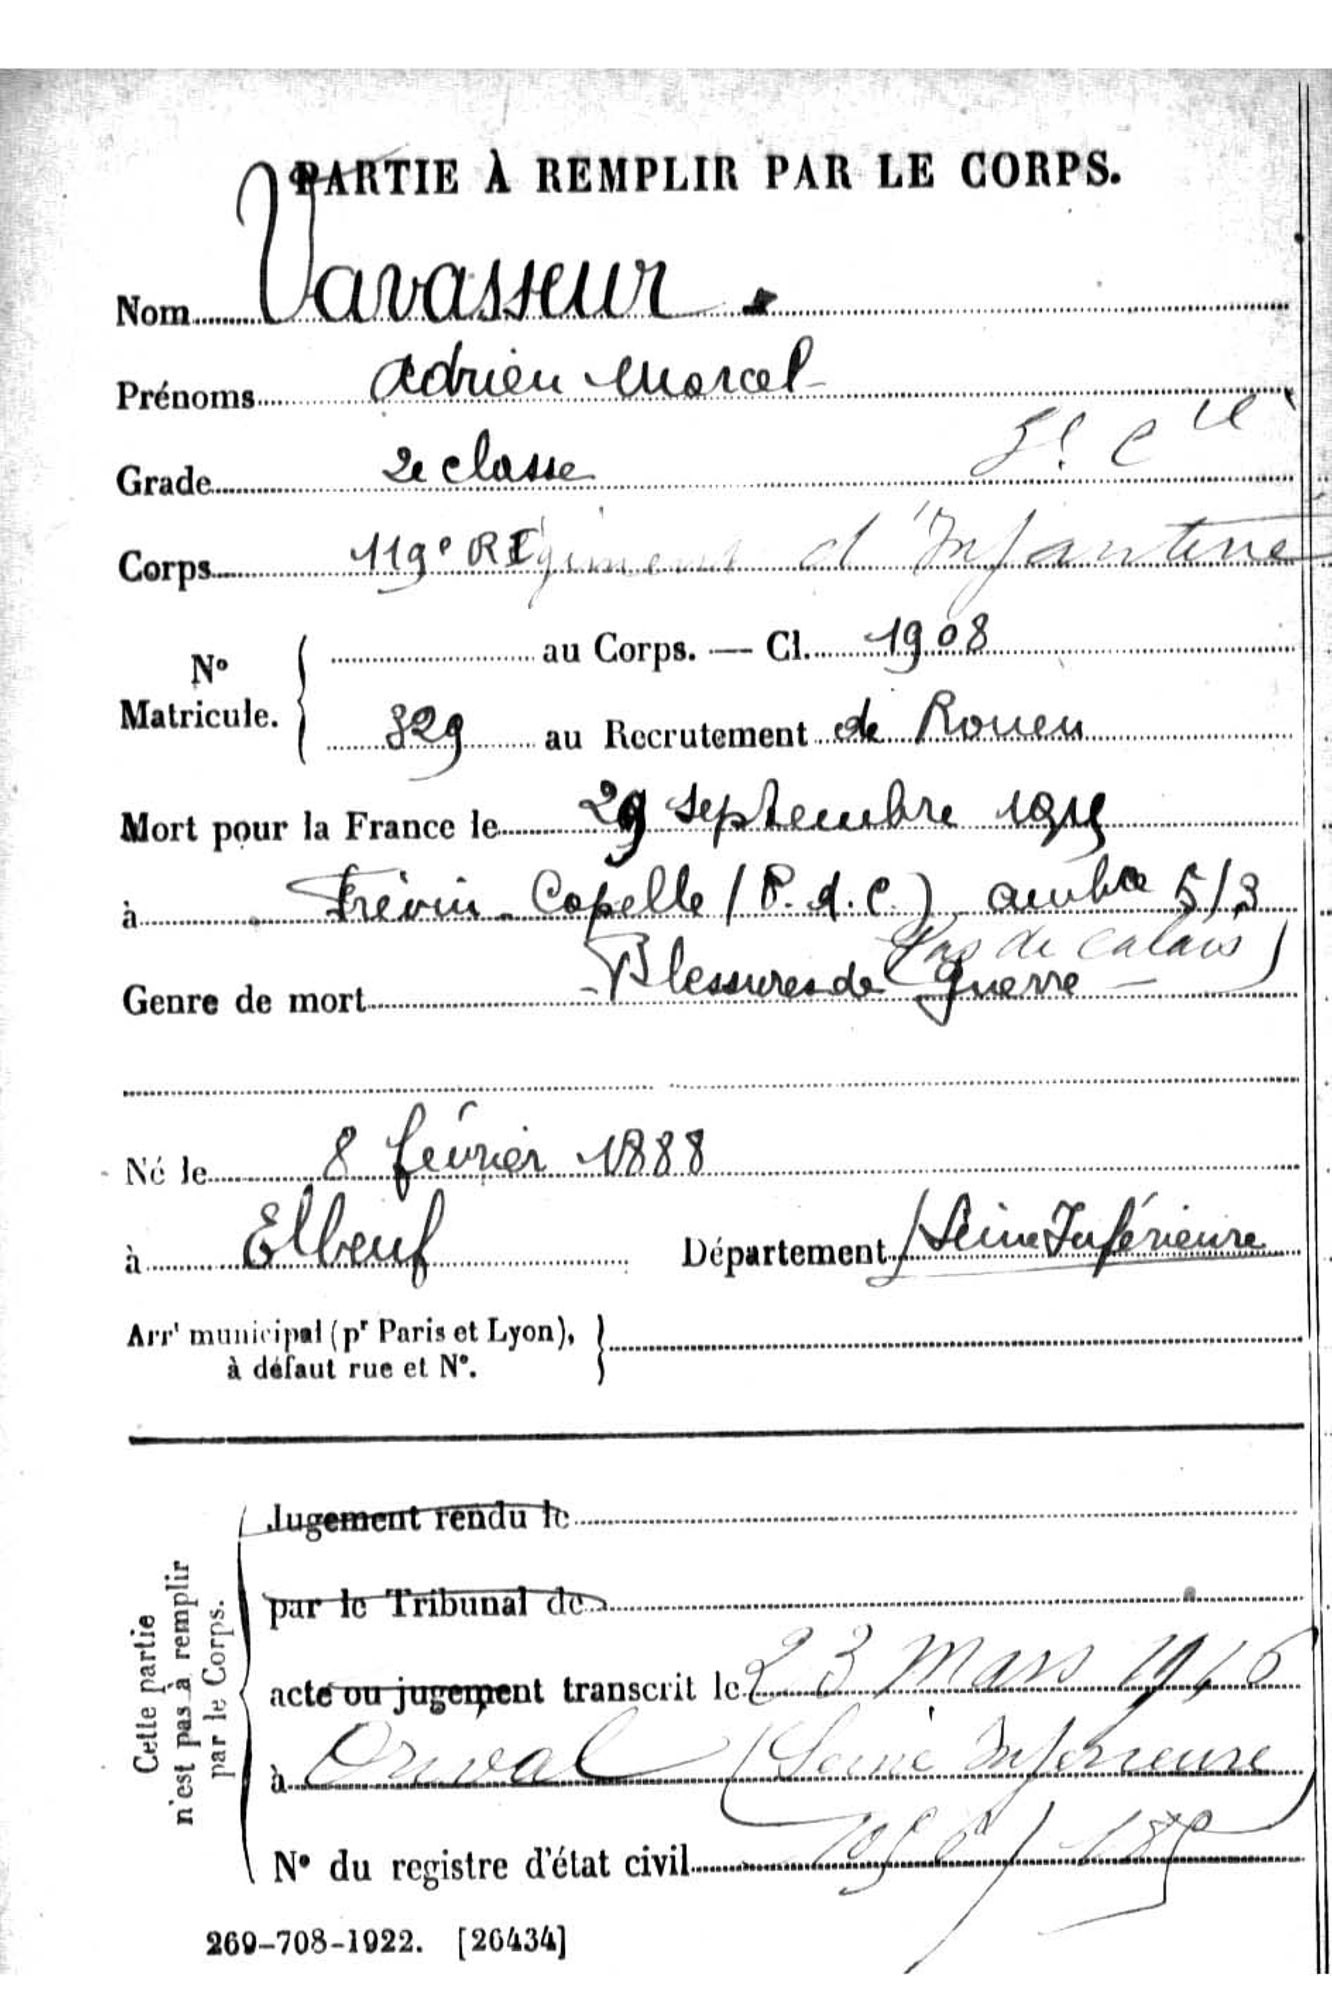 PARTIE À REMPLIR PAR LE CORPS.
Nom Vavasseur
Prénoms Adrien Marcel
Grade 2e classe 5e Cie
Corps 119e RÉgiment d'Infanterie
No Matricule. au Corps. — Cl. 1908
329 au Recrutement de Rouen
Mort pour la France le 29 septembre 1915
à Frévin-Capelle (P.d.C.) 5/3
(Pas de Calais)
Genre de mort Blessures de guerre
Né le 8 février 1888
à Elbeuf Département Seine Inférieure
Arrt municipal (pr Paris et Lyon),
à défaut rue et No.
Cette partie
n'est pas à remplir
par le Corps.
Jugement rendu le
par le Tribunal de
acte ou jugement transcrit le 23 Mars 1916
à Orival (Seine Inférieure)
No du registre d'état civil
269-708-1922. [26434]